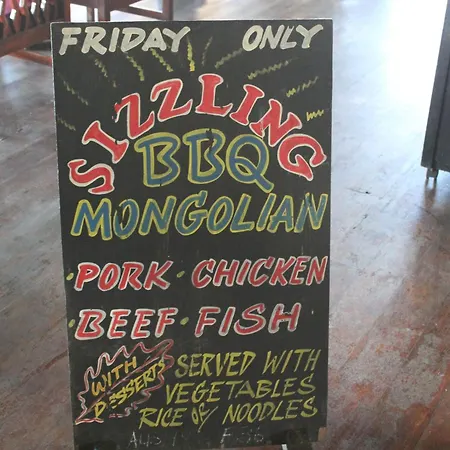 FRIDAY ONLY
SIZZLING
BBQ
MONGOLIAN
· PORK · CHICKEN
· BEEF · FISH
WITH
DESSERTS
SERVED WITH
VEGETABLES
RICE OR NOODLES